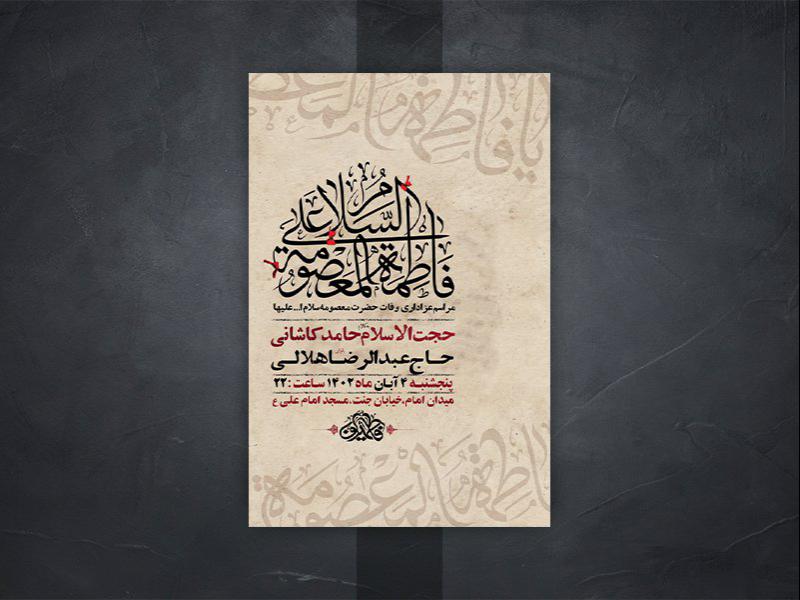 یا فاطمة المعصومة
السلام علی
فاطمة المعصومة
مراسم عزاداری وفات حضرت معصومه سلام ا... علیها
حجت الاسلام حامد کاشانی
حاج عبدالرضا هلالی
پنجشنبه ۴ آبان ماه ۱۴۰۲ ساعت : ۲۲
میدان امام، خیابان جنت، مسجد امام علی ع
فاطمیون
فاطمة المعصومة